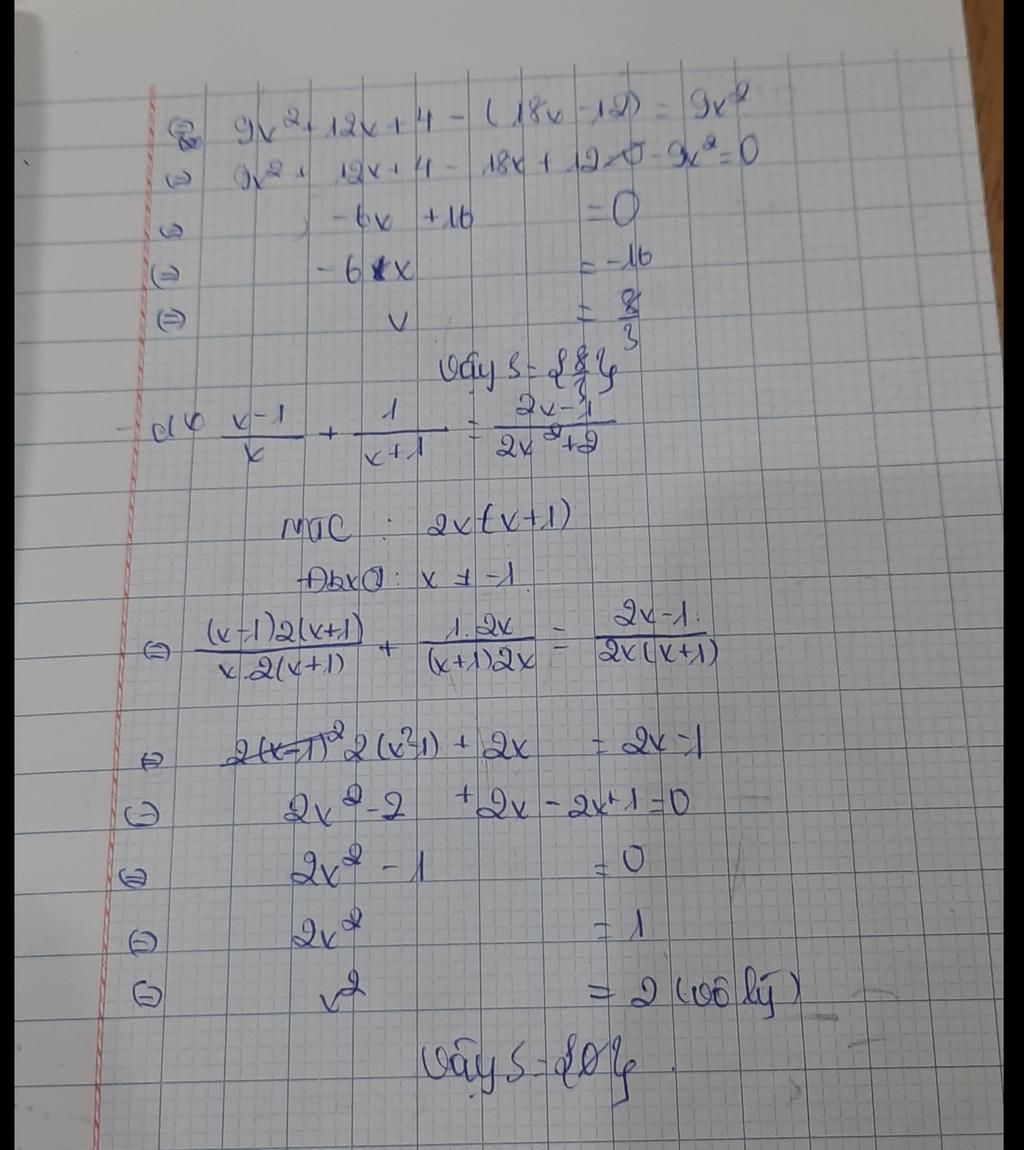 ⇔ 9x² + 12x + 4 - (18x - 12) = 9x²
⇔ 9x² + 12x + 4 - 18x + 12 - 9x² = 0
⇔ -6x + 16 = 0
⇔ -6x = -16
⇔ x = 8/3
Vậy S = {8/3}
d) (x-1)/x + 1/(x+1) = (2x-1)/(2x²+2)
MTC : 2x(x+1)
ĐKXĐ: x ≠ -1
⇔ (x-1)2(x+1)/x.2(x+1) + 1.2x/(x+1)2x = 2x-1/2x(x+1)
⇔ 2(x²-1) + 2x = 2x-1
⇔ 2x² - 2 + 2x - 2x + 1 = 0
⇔ 2x² - 1 = 0
⇔ 2x² = 1
⇔ x² = 2 (vô lý)
Vậy S = {∅}